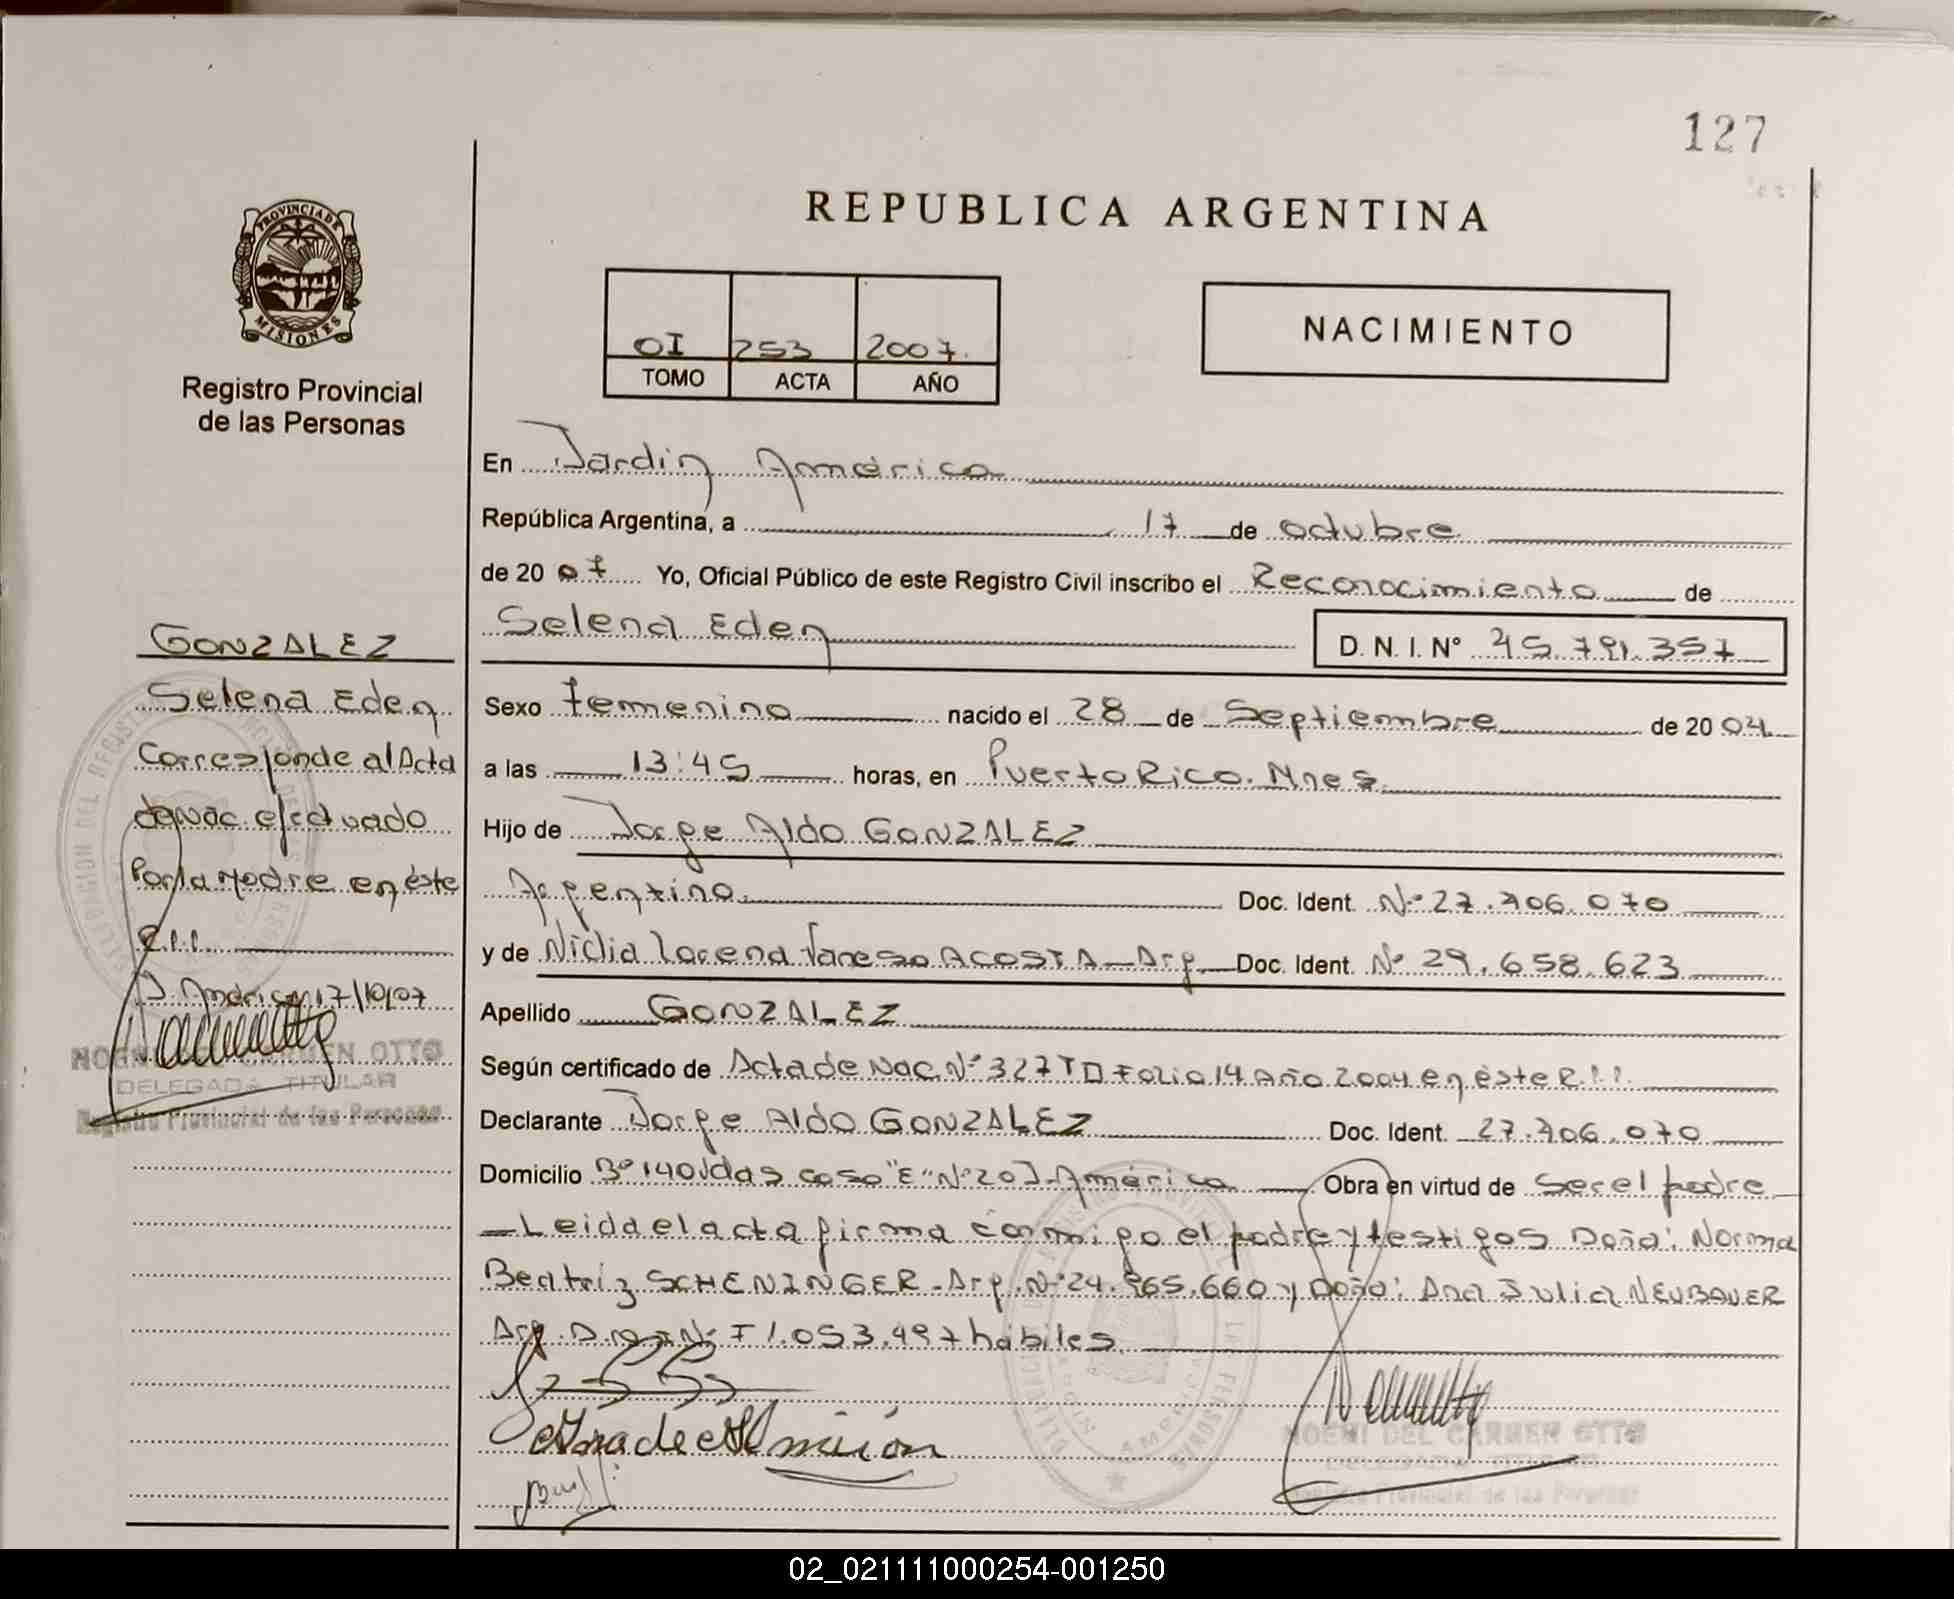 127
REPUBLICA ARGENTINA
PROVINCIA DE
MISIONES
Registro Provincial
de las Personas
OI 253 2007.
TOMO ACTA AÑO
NACIMIENTO
En Jardín América
República Argentina, a 17 de octubre
de 20 07 Yo, Oficial Público de este Registro Civil inscribo el Reconocimiento de
Selena Eden D. N. I. N° 45.791.357
Sexo femenino nacido el 28 de Septiembre de 20 04
a las 13:45 horas, en Puerto Rico. Mnes.
Hijo de Jorge Aldo GONZALEZ
Argentino Doc. Ident. N° 27.406.070
y de Nidia Lorena Vanesa ACOSTA Arg. Doc. Ident. N° 29.658.623
Apellido GONZALEZ
Según certificado de Acta de Nac. N° 327 T Folio 14 Año 2004 en éste R.P.P.
Declarante Jorge Aldo GONZALEZ Doc. Ident. 27.406.070
Domicilio B° 140 Vdas casa "E" N° 20 J. América Obra en virtud de Ser el padre
Leida el acta firma conmigo el padre y testigos Doña: Norma
Beatriz SCHENINGER. Arg. N° 24.965.660 y Doña: Ana Julia NEUBAUER
Arg. D. N° F 1.053.497 hábiles.
NOEMI DEL CARMEN OTTO
DELEGADA TITULAR
Registro Provincial de las Personas
GONZALEZ
Selena Eden
Corresponde al Acta
de Nac. efectuado
Por la Madre en éste
R.P.P.
J. América, 17/10/07
NOEMI DEL CARMEN OTTO
DELEGADA TITULAR
Registro Provincial de las Personas
02_021111000254-001250